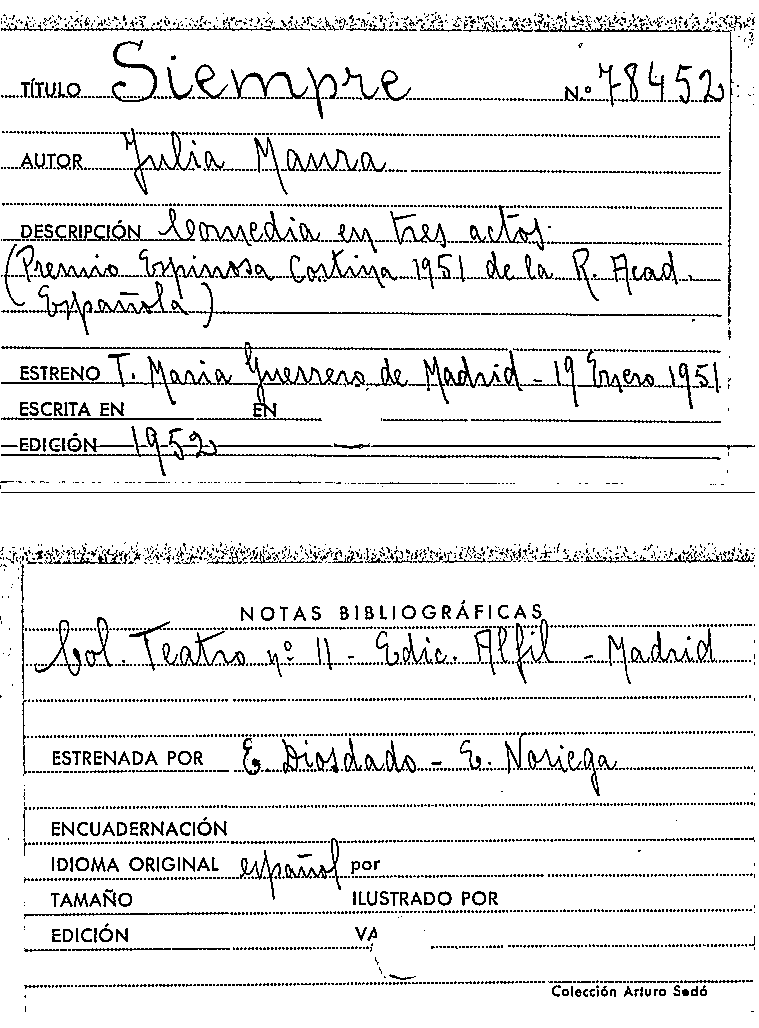 TÍTULO Siempre N.º 78452
AUTOR Julia Maura
DESCRIPCIÓN Comedia en tres actos.
(Premio Espinosa Cortina 1951 de la R. Acad.
Española)
ESTRENO T. Maria Guerrero de Madrid - 19 Enero 1951
ESCRITA EN EN
EDICIÓN 1952
NOTAS BIBLIOGRÁFICAS
Col. Teatro nº 11 - Edic. Alfil - Madrid
ESTRENADA POR E. Diosdado - E. Noriega
ENCUADERNACIÓN
IDIOMA ORIGINAL español por
TAMAÑO ILUSTRADO POR
EDICIÓN VA
Colección Arturo Sedó